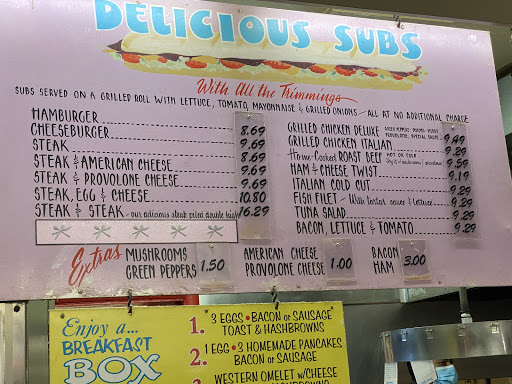 DELICIOUS SUBS
With All the Trimmings
SUBS SERVED ON A GRILLED ROLL WITH LETTUCE, TOMATO, MAYONNAISE & GRILLED ONIONS - ALL AT NO ADDITIONAL CHARGE
HAMBURGER 8.69
CHEESEBURGER 9.69
STEAK 8.69
STEAK & AMERICAN CHEESE 9.69
STEAK & PROVOLONE CHEESE 9.69
STEAK, EGG & CHEESE 10.80
STEAK & STEAK - our delicious steak fried double high 16.29
GRILLED CHICKEN DELUXE 9.49
GRILLED CHICKEN ITALIAN 9.29
Home-Cooked ROAST BEEF HOT OR COLD 9.59
HAM & CHEESE TWIST 9.19
ITALIAN COLD CUT 9.29
FISH FILET - With tartar sauce & lettuce 9.29
TUNA SALAD 9.29
BACON, LETTUCE & TOMATO 9.29
Extras
MUSHROOMS
GREEN PEPPERS 1.50
AMERICAN CHEESE
PROVOLONE CHEESE 1.00
BACON
HAM 3.00
Enjoy a...
BREAKFAST
BOX
1. 3 EGGS • BACON or SAUSAGE
TOAST & HASHBROWNS
2. 1 EGG • 3 HOMEMADE PANCAKES
BACON or SAUSAGE
WESTERN OMELET w/CHEESE